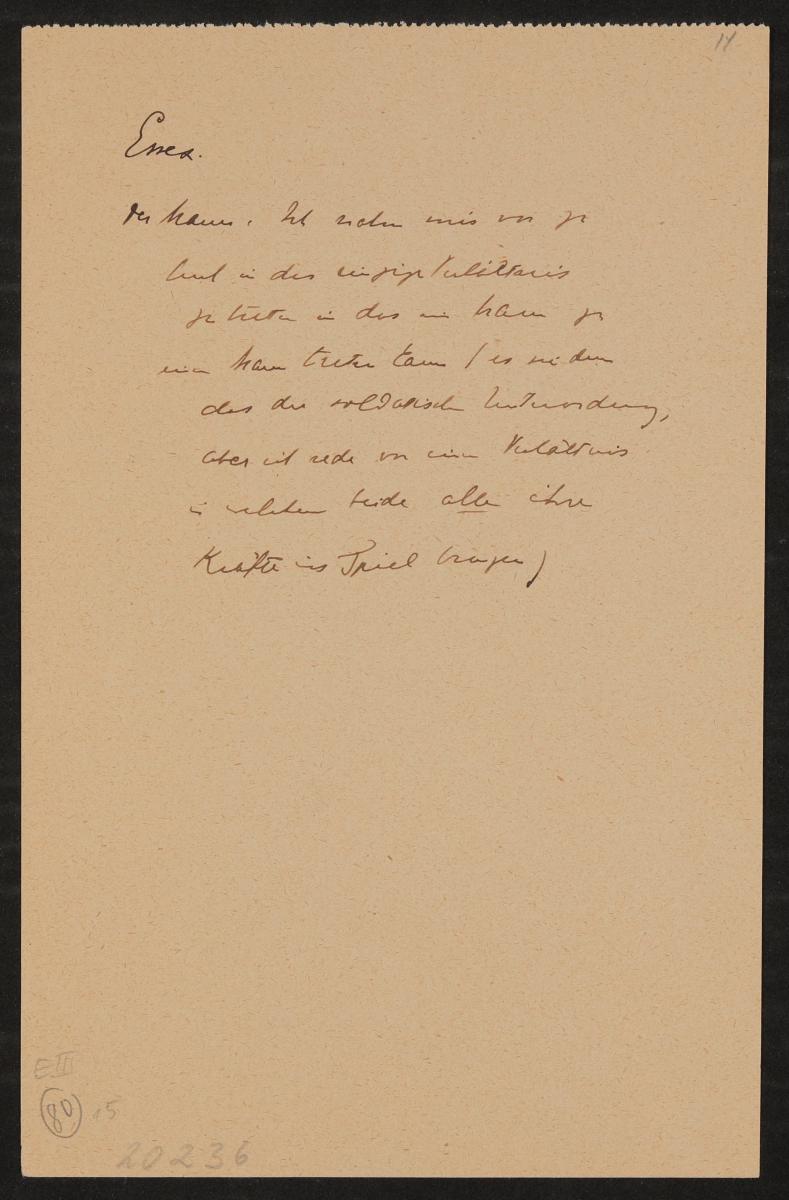 14
Essex.
Der Mann. Ich
in das einzige Verhältnis
getreten in das ein Mann zu
einem Mann treten kann (es sei denn
das der soldatischen Unterordnung,
aber ich rede von einem Verhältnis
in welchem beide alle ihre
Kräfte ins Spiel bringen)
E III
80 15
20236